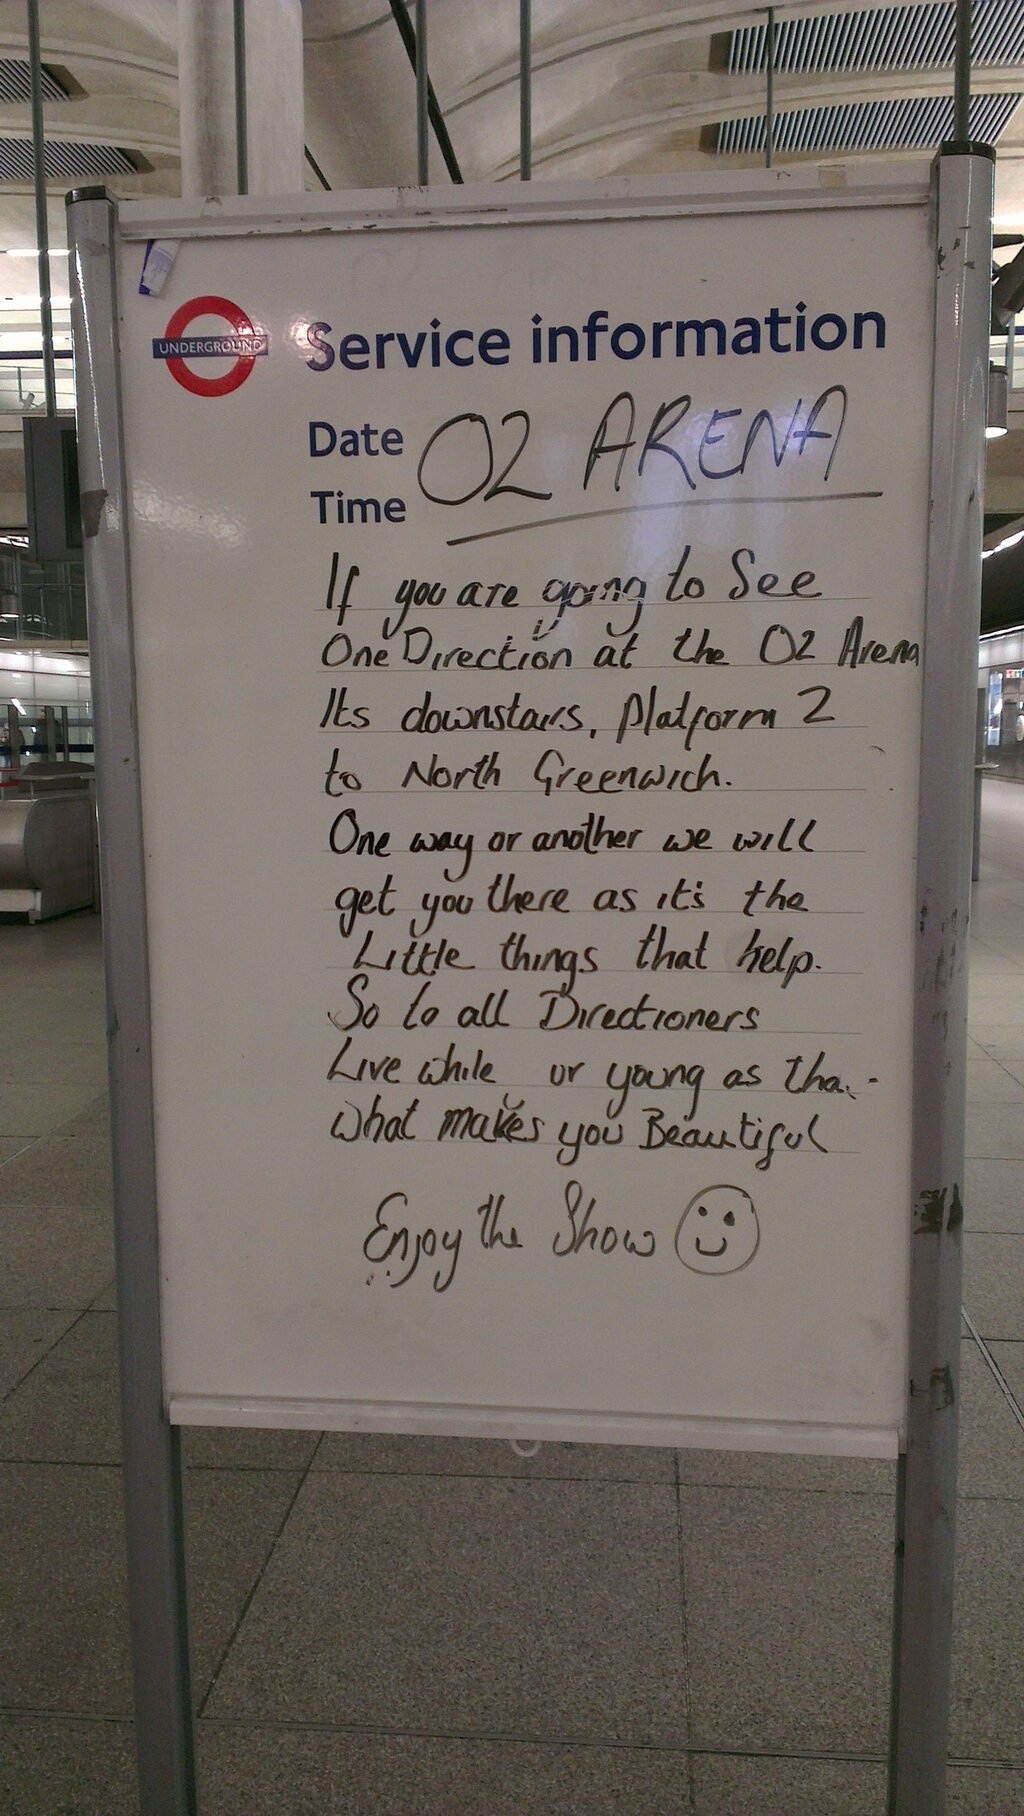 UNDERGROUND Service information
Date O2 ARENA
Time
If you are going to See
One Direction at the O2 Arena
Its downstairs, platform 2
to North Greenwich.
One way or another we will
get you there as it's the
Little things that help.
So to all Directioners
Live while ur young as
what makes you Beautiful
Enjoy the Show